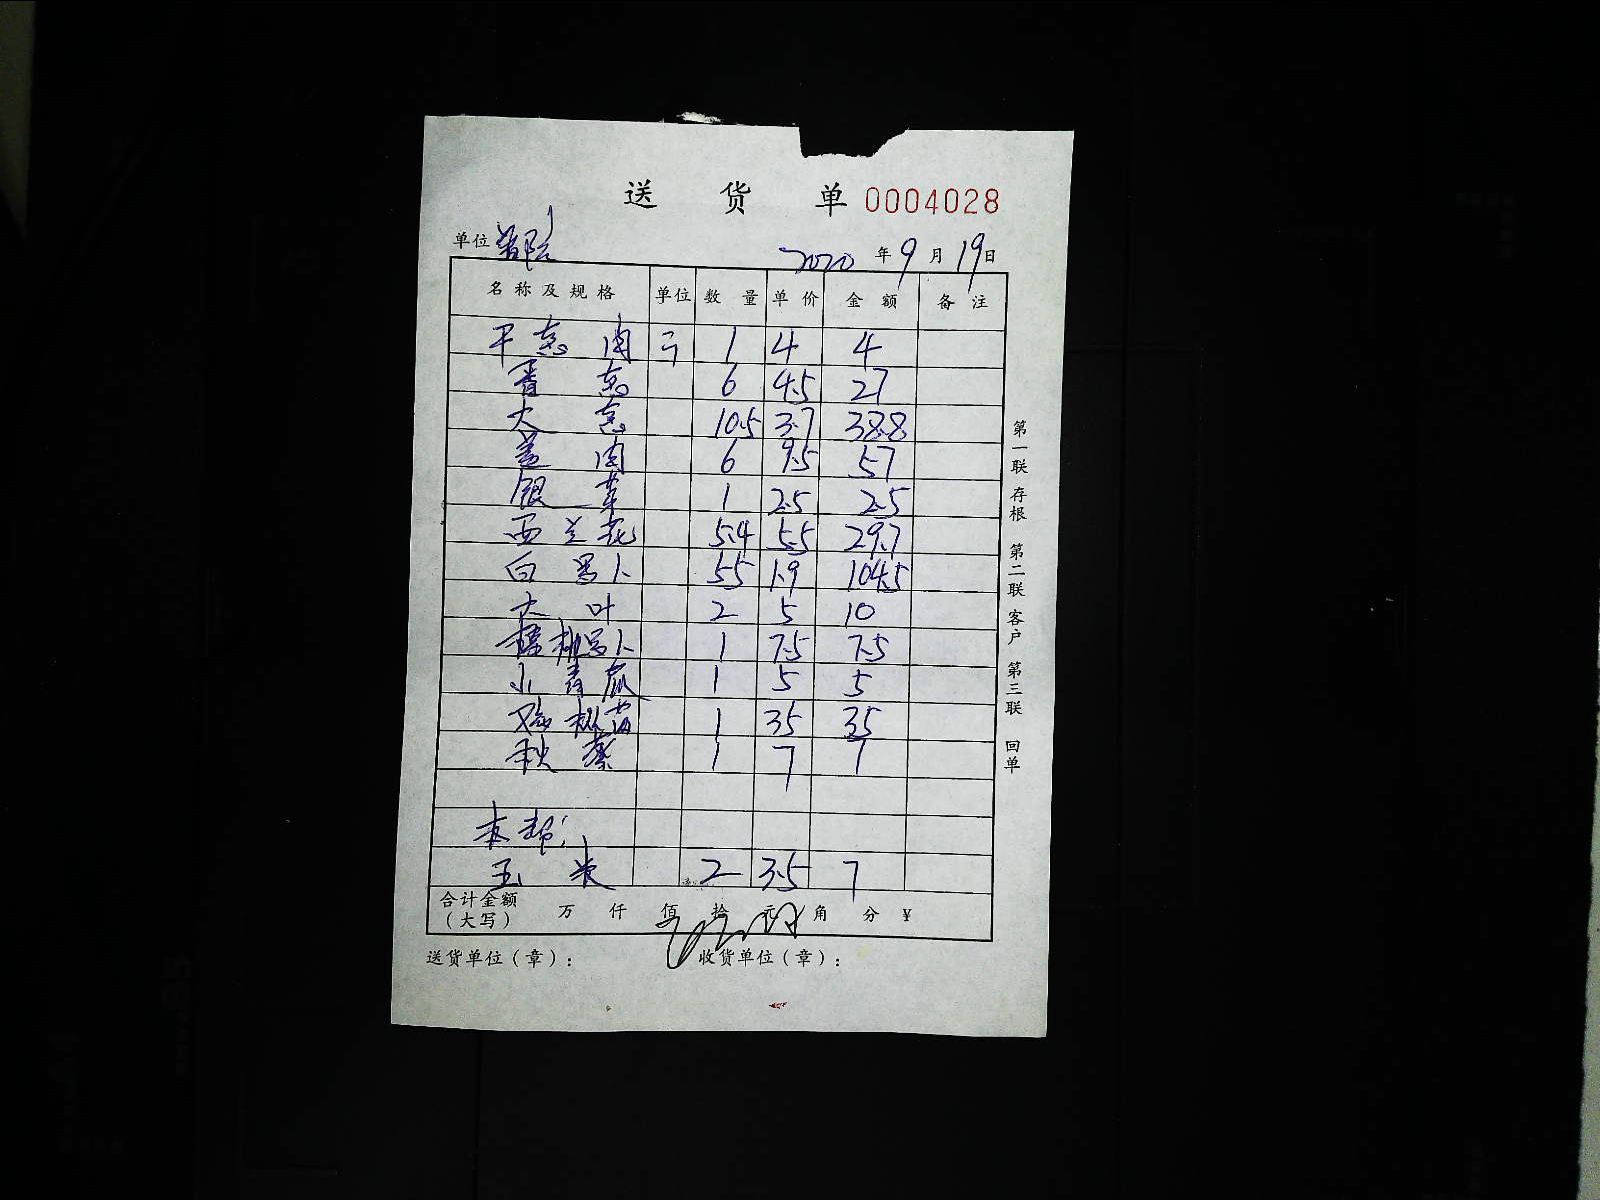 送 货 单 0004028
单位 2020 年 9 月 19 日
名称及规格 单位 数量 单价 金额 备注
干葱肉 斤 1 4 4
香葱 6 4.5 27
大葱 10.5 3.7 38.8
姜肉 6 9.5 57
银芽 1 2.5 2.5
西兰花 5.4 5.5 29.7
白罗卜 55 1.9 104.5
大叶 2 5 10
樱桃罗卜 1 7.5 7.5
小青瓜 1 5 5
鸡枞菌 1 35 35
秋葵 1 7 7
本帮:
玉米 2 3.5 7
合计金额
(大写) 万 仟 佰 拾 元 角 分 ¥
送货单位(章): 收货单位(章):
第一联 存根 第二联 客户 第三联 回单